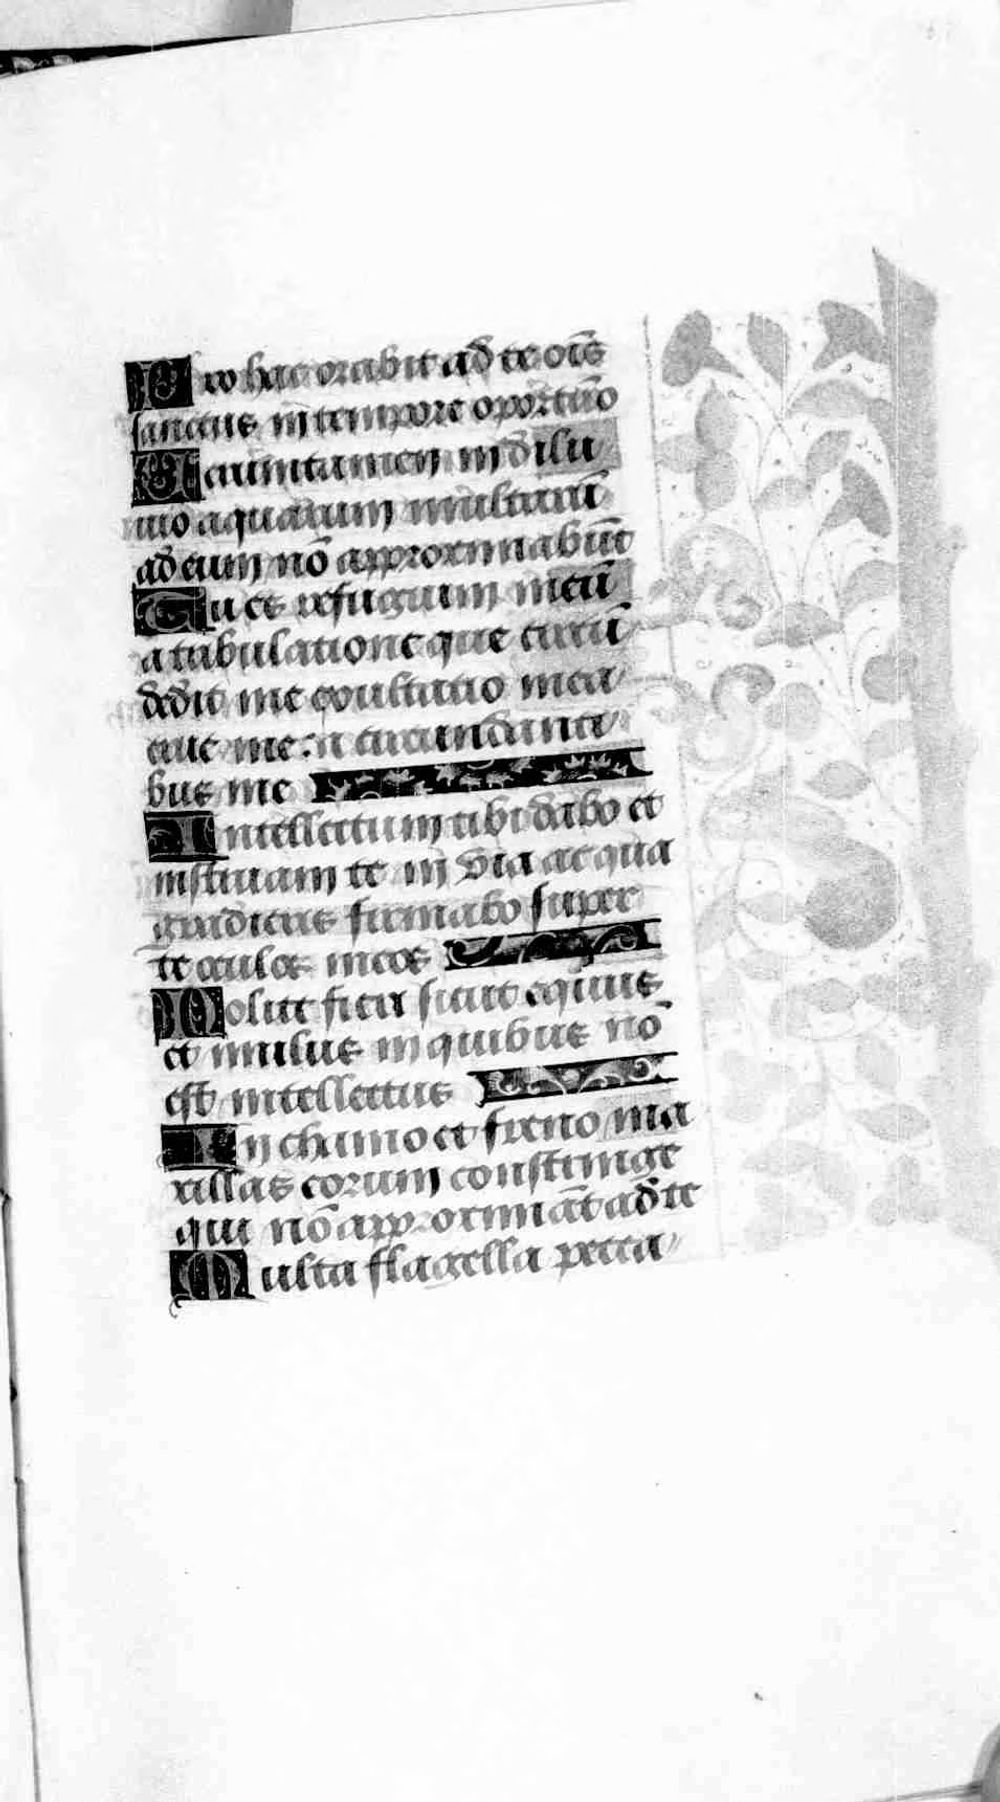 Pro hac orabit ad te ois̄
sanctus in tempore oportūo
Veruntamen in dilu
uio aquarum multarū
ad eum nō approximabūt
Tu es refugium meū
a tribulatione que circū
dedit me exultatio mea
erue me: a circundanti
bus me
Intellectum tibi dabo et
instruam te in via ac qua
gradieris firmabo super
te oculos meos
Nolite fieri sicut equus
et mulus in quibus nō
est intellectus
In chamo et freno ma
xillas eorum constringe
qui nō approximāt ad te
Multa flagella pecca